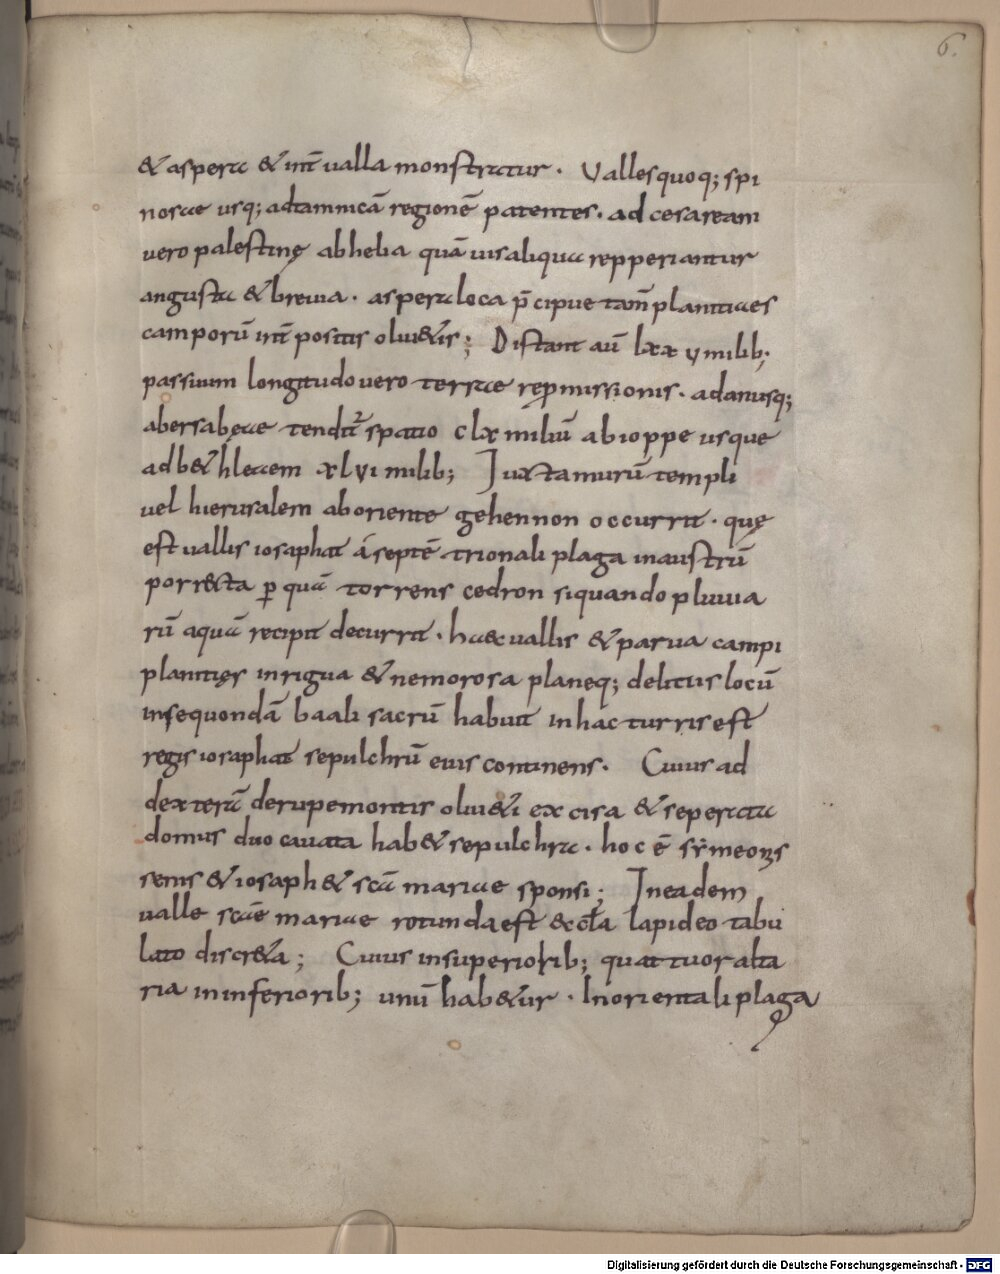 6.
& aspera & int̄ualla monstratur · Vallesquoq; spi
nosae usq; adtamnicā regionē patentes · ad cesaream
uero palestinę abhelia quāuisaliqua repperiantur
angusta & breuia · asperaloca p̄cipue tam̄ planitiaes
camporū int̄ positis oliu&is; Distant aū lxx vmilib;
passuum longitudo uero terrae rep̱missionis · adanusq;
abersabęae tendit᷑ spatio clx miliū abioppe usque
adb&hleaem xlvi milib; Iuxtamurū templi
uel hierusalem aboriente gehennon occurrit · quę
est uallis iosaphat á septē trionali plaga inaustrū
porrecta ꝑ quā torrens cedron siquando pluuia
rū aquā recipit decurrit · haecuallis & parua campi
planitięs inrigua & nemorosa planeq; delitiis locū
insequondā baali sacrū habuit inhac turris est
regis iosaphat sepulchrū euis continens · Cuius ad
dexterā derupemontis oliu&i excisa & seperata
domus duo cauata hab& sepulchra · hoc ē sẏmeonis
senis & iosaph & scā mariae sponsi; Ineadem
ualle scāē mariae rotunda est &cła lapideo tabu
lato discr&a; Cuius insuperiorib; quattuor alta
ria ininferiorib; unū hab&ur · Inorientali plaga
Digitalisierung gefördert durch die Deutsche Forschungsgemeinschaft - DFG